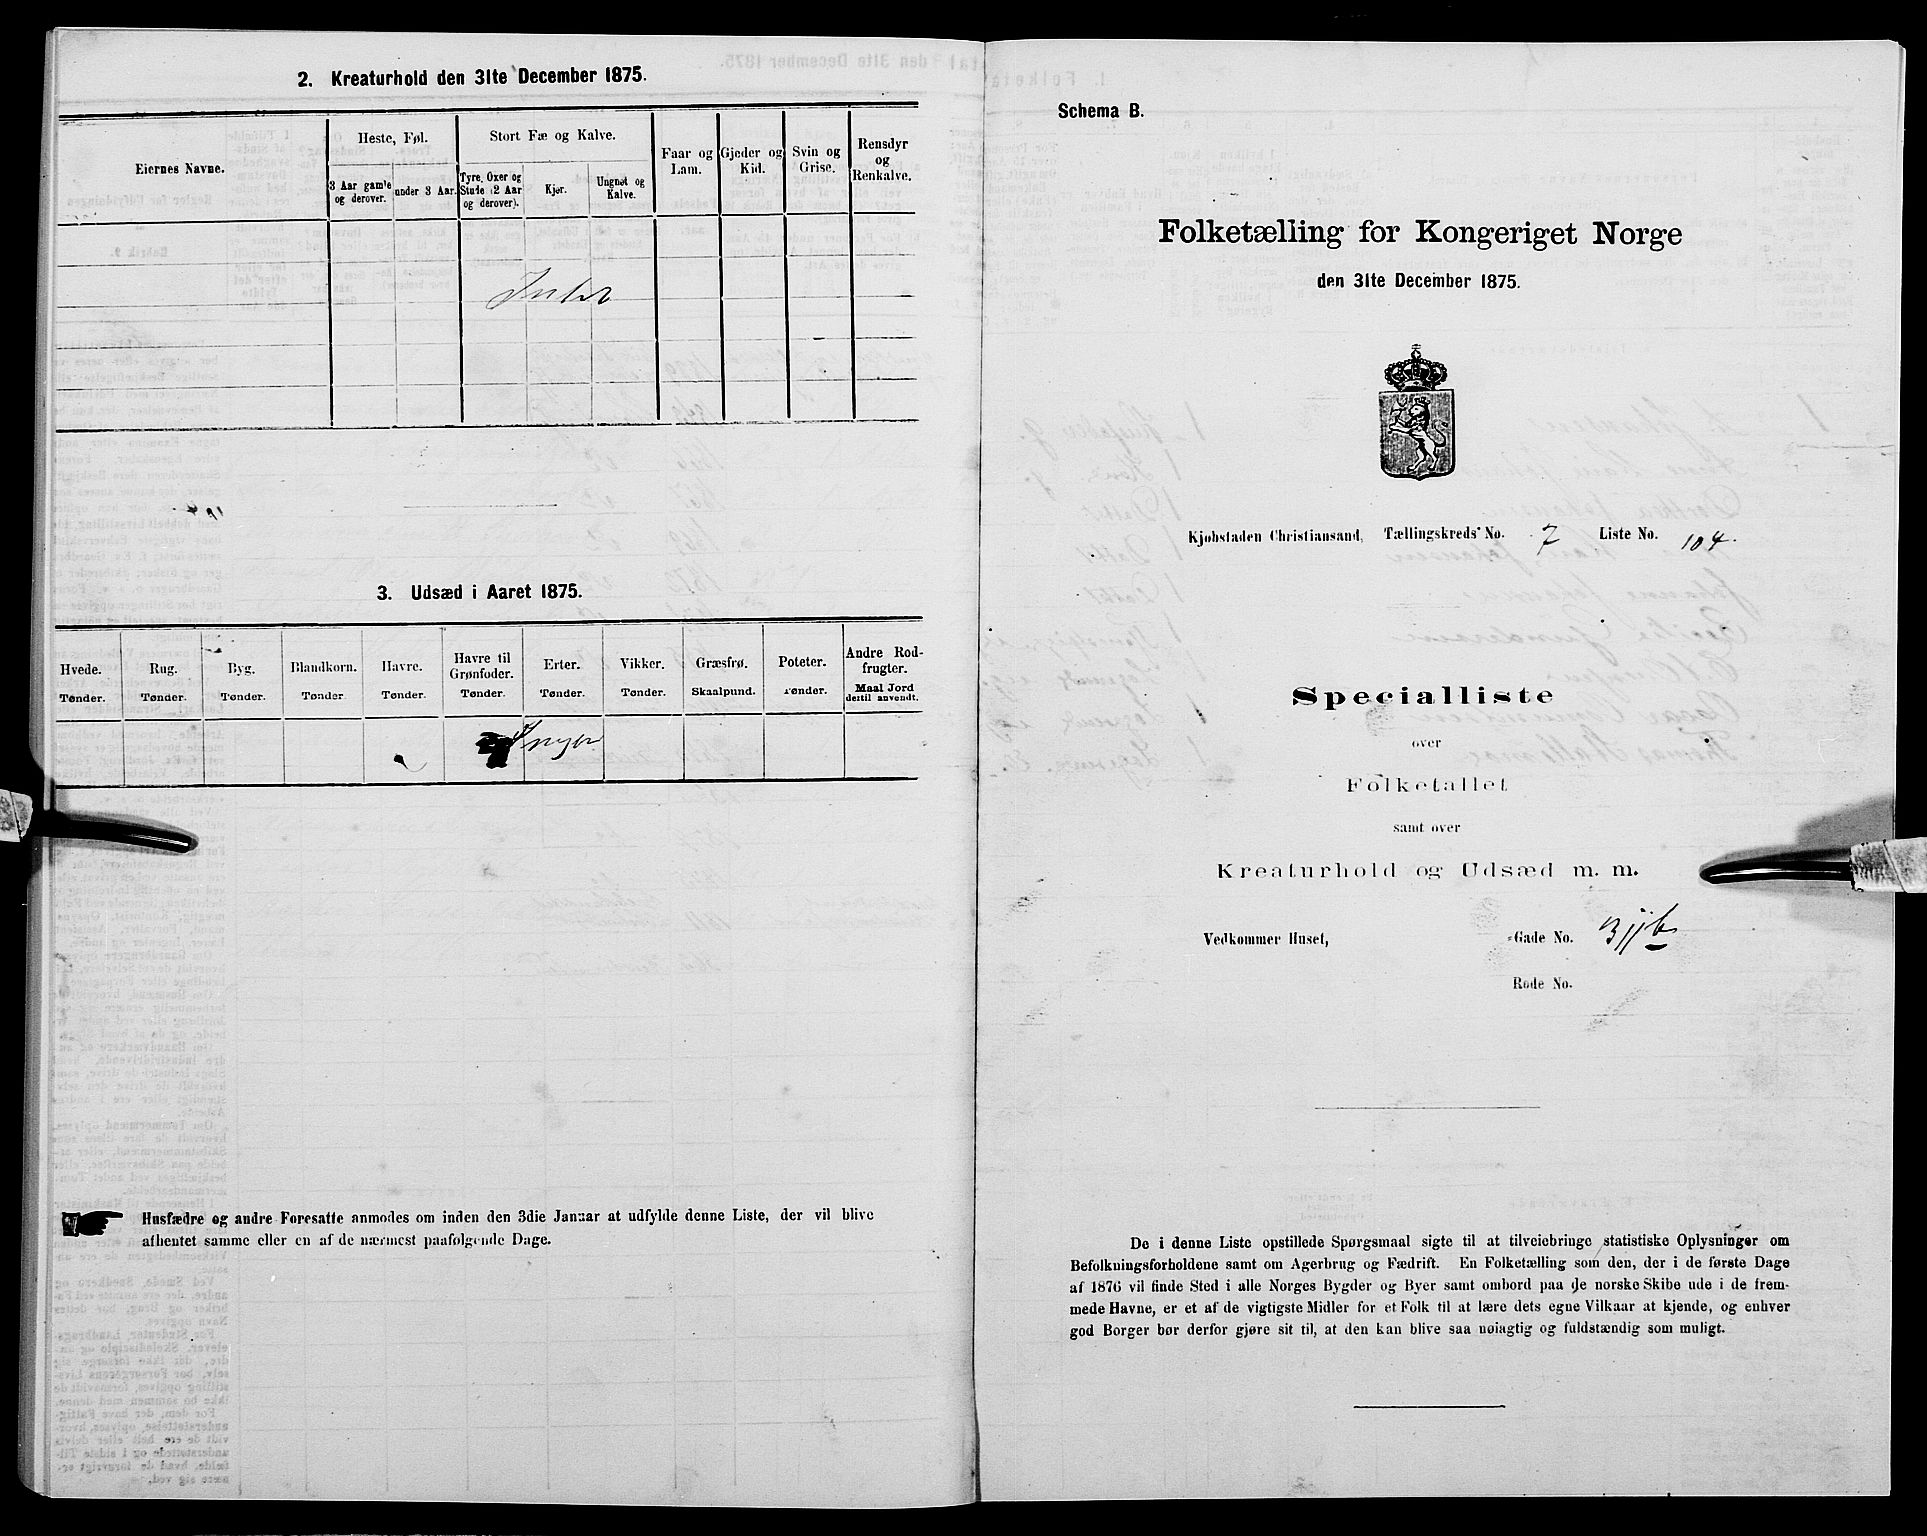 2. Kreaturhold den 31te December 1875.
Eiernes Navne.
Heste, Føl.
3 Aar gamle og derover.
under 3 Aar.
Stort Fæ og Kalve.
Tyre, Oxer og Stude (2 Aar og derover).
Kjør.
Ungnøt og Kalve.
Faar og Lam.
Gjeder og Kid.
Svin og Grise.
Rensdyr og Renkalve.
Intet
3. Udsæd i Aaret 1875.
Hvede. Tønder.
Rug. Tønder.
Byg. Tønder.
Blandkorn. Tønder.
Havre. Tønder.
Havre til Grønfoder. Tønder.
Erter. Tønder.
Vikker. Tønder.
Græsfrø. Skaalpund.
Poteter. Tønder.
Andre Rodfrugter. Maal Jord dertil anvendt.
Ingen
Husfædre og andre Foresatte anmodes om inden den 3die Januar at udfylde denne Liste, der vil blive
afhentet samme eller en af de nærmest paafølgende Dage.
Schema B.
Folketælling for Kongeriget Norge
den 31te December 1875.
Kjøbstaden Christiansand, Tællingskreds No. 7 Liste No. 104.
Specialliste
over
Folketallet
samt over
Kreaturhold og Udsæd m. m.
Vedkommer Huset, Gade No.
Rode No.
De i denne Liste opstillede Spørgsmaal sigte til at tilveiebringe statistiske Oplysninger om
Befolkningsforholdene samt om Agerbrug og Fædrift. En Folketælling som den, der i de første Dage
af 1876 vil finde Sted i alle Norges Bygder og Byer samt ombord paa de norske Skibe ude i de frem-
mede Havne, er et af de vigtigste Midler for et Folk til at lære dets egne Vilkaar at kjende, og enhver
god Borger bør derfor gjøre sit til, at den kan blive saa nøiagtig og fuldstændig som muligt.